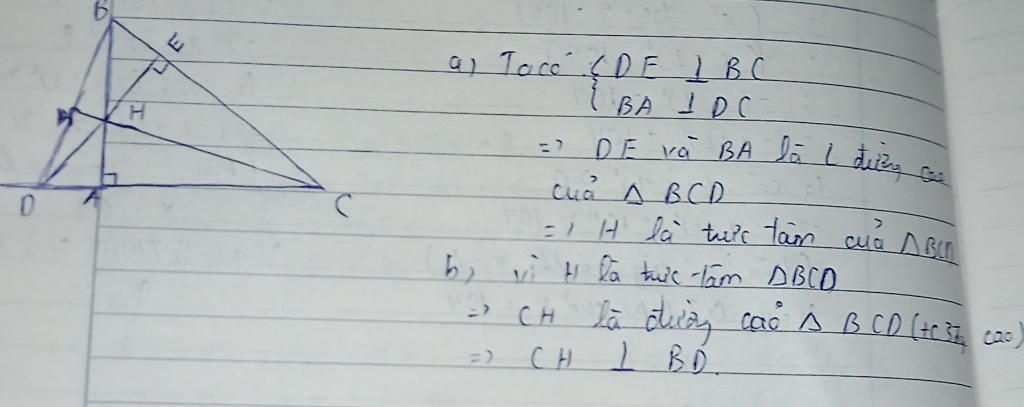 B
E
H
D A C
a) Ta có { DE ⊥ BC
{ BA ⊥ DC
=> DE và BA là 2 đường cao
của Δ BCD
=> H là trực tâm của ΔBCD
b) vì H là trực tâm ΔBCD
=> CH là đường cao Δ BCD (tc 3 đg cao)
=> CH ⊥ BD.